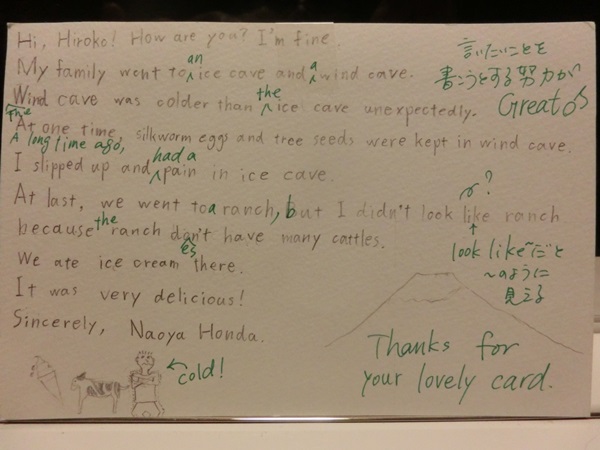 Hi, Hiroko! How are you? I'm fine.
My family went to an ice cave and a wind cave.
The Wind cave was colder than the ice cave unexpectedly.
At one time, silkworm eggs and tree seeds were kept in wind cave.
A long time ago,
I slipped up and had a pain in ice cave.
At last, we went to a ranch, but I didn't look like ranch
because the ranch don't have many cattles.
es
We ate ice cream there.
It was very delicious!
Sincerely, Naoya Honda.
言いたいことを
書こうとする努力が
Great
?
look like だと
〜のように
見える
cold!
Thanks for
your lovely card.